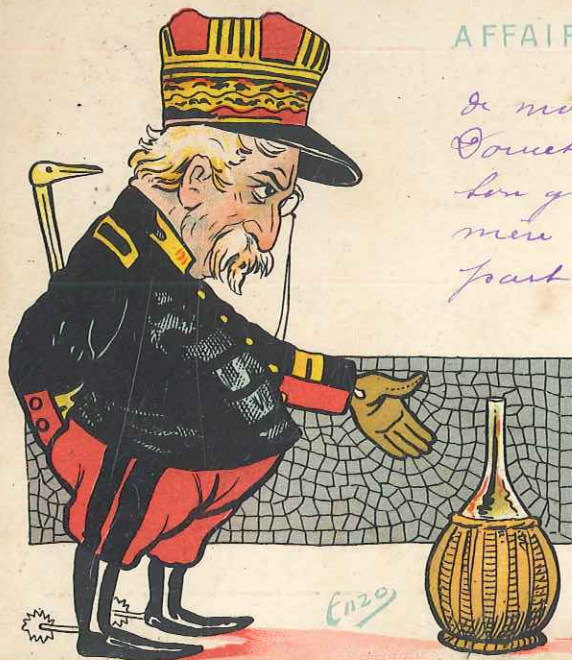 AFFAIR
de mo
Douce
ton g
mère
part
Enzo